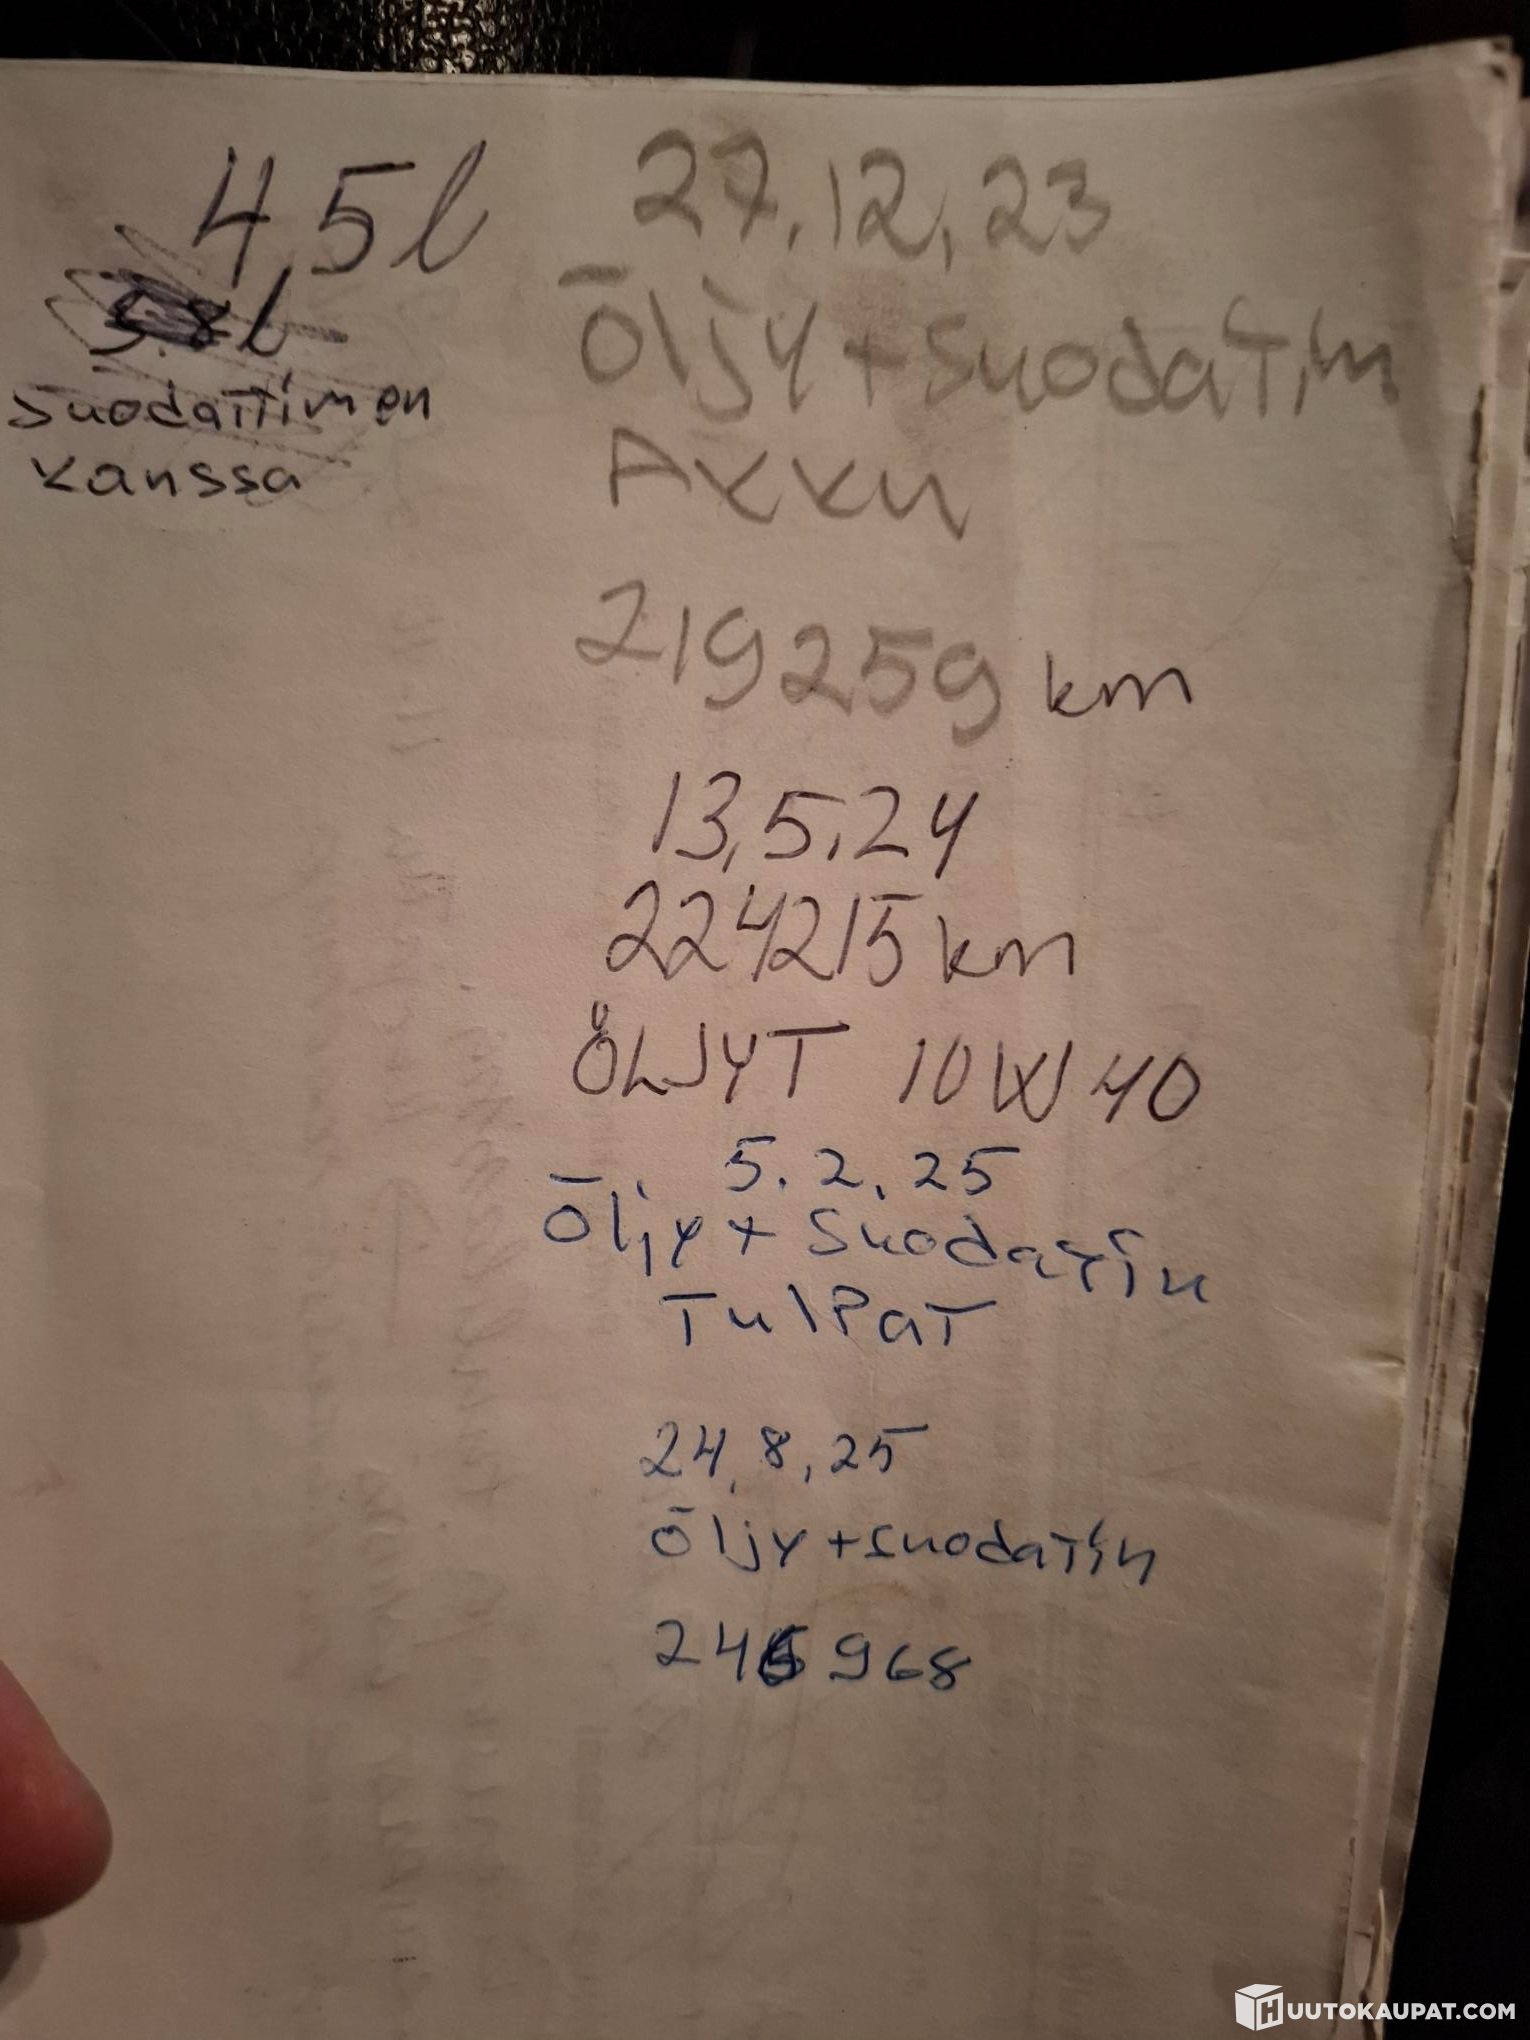 4,5 l
suodattimen
kanssa
27.12.23
Öljy + suodatin
Akku
219259 km
13.5.24
224215 km
ÖLJYT 10W40
5.2.25
Öljy + Suodatin
TulPaT
24.8.25
Öljy + suodatin
HUUTOKAUPAT.COM